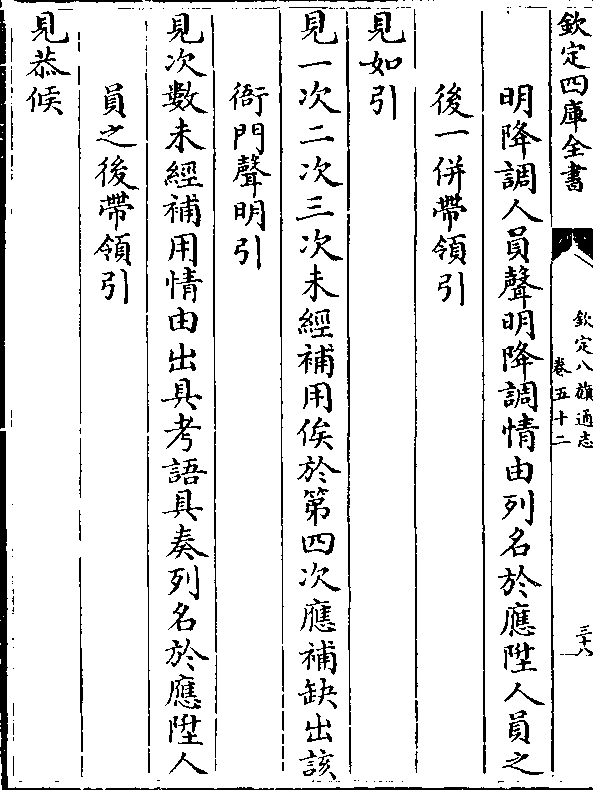 欽定四庫全書
欽定八旗通志
卷五十二
三十八
明降調人員聲明降調情由列名於應陞人員之
後一併帶領引
見如引
見一次二次三次未經補用俟於第四次應補缺出該
衙門聲明引
見次數未經補用情由出具考語具奏列名於應陞人
員之後帶領引
見恭候